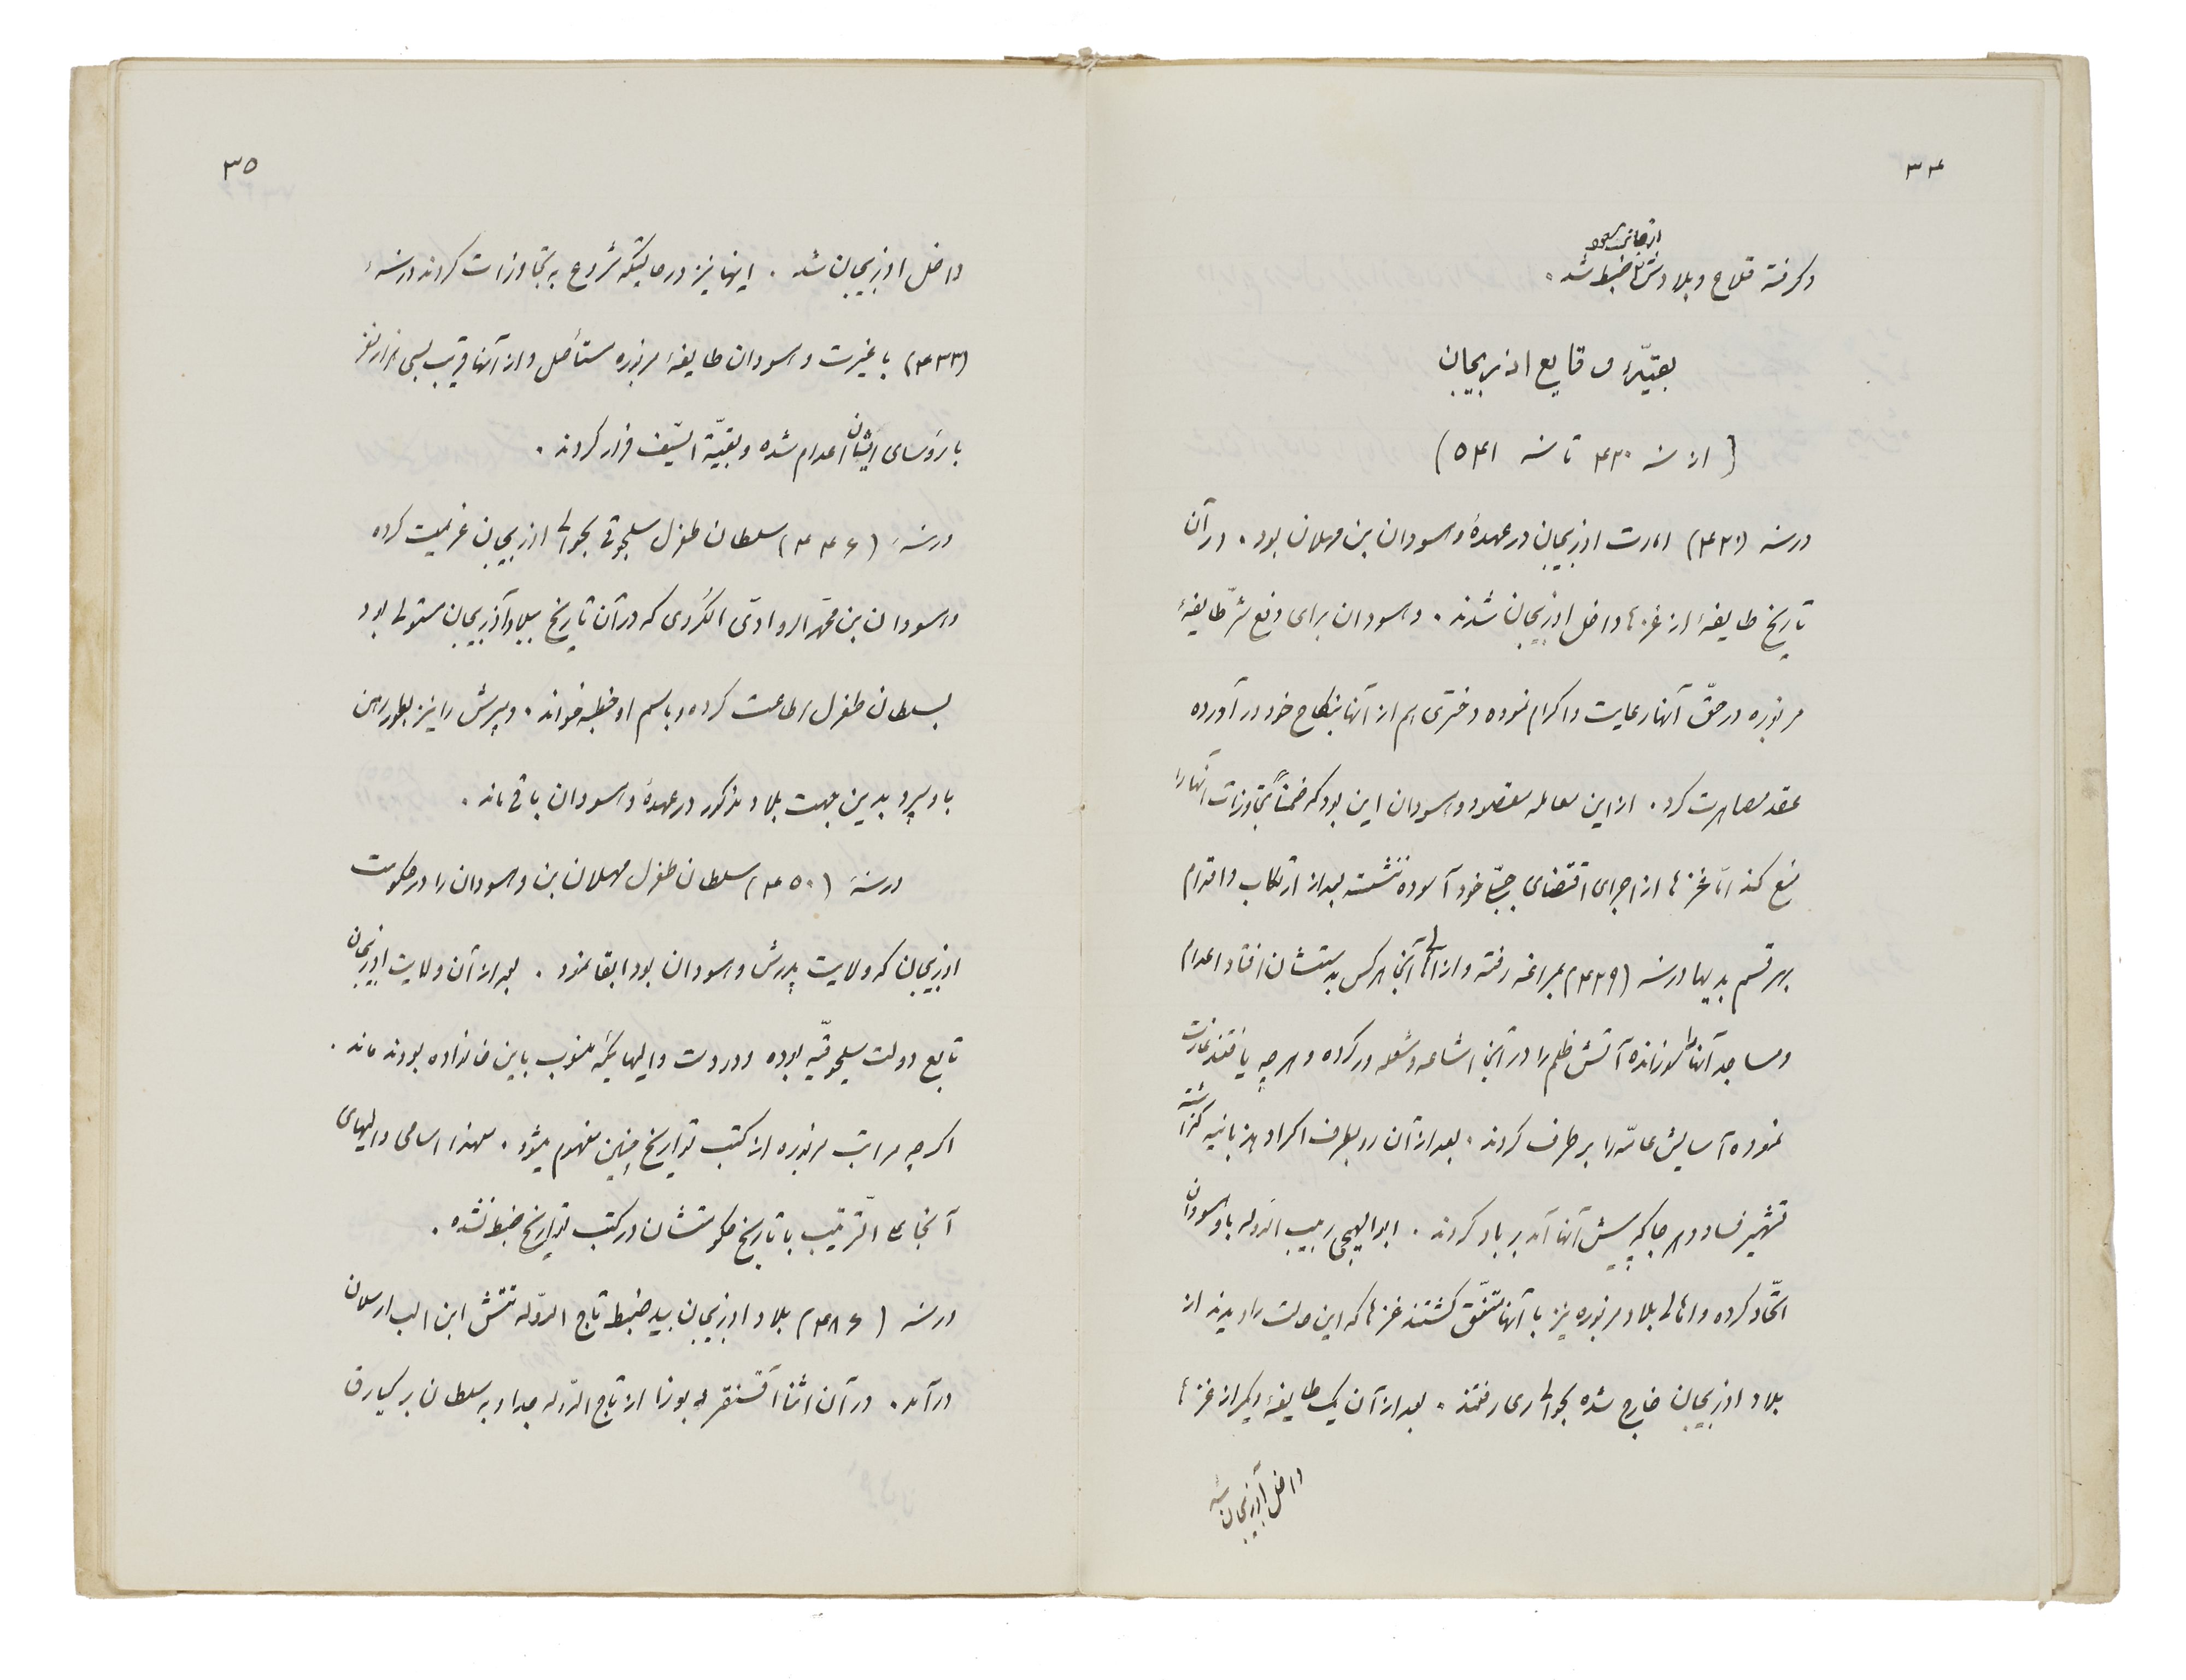 ۳۴
از جانب مسعود
و گرفته قلاع و بلادش ضبط شد .
بقیّهٔ وقایع اذربیجان
( از سنه ۴۲۰ تا سنه ۵۴۱ )
در سنه (۴۲۰) امارت اذربیجان در عهدهٔ وهسودان بن مهلان بود . در آن
تاریخ طایفهٔ از غزها داخل اذربیجان شدند . وهسودان برای دفع شرّ طایفهٔ
مزبوره در حقّ آنها رعایت و اکرام نموده دختری هم از آنها بنکاح خود در آورده
عقد مصاهرت کرد . از این معامله مقصود وهسودان این بود که ضمناً تجاوزات آنها را
منع کند امّا غزها از اجرای اقتضای جبلّی خود آسوده ننشسته بعد از ارتکاب و اقدام
بهر قسم بدیها در سنه (۴۲۹) بمراغه رفته و از اهالی آنجا هر کس بدستشان افتاد اعدام
و مساجد آنها را سوزانده آتش ظلم را در آنجا اشاعه و شعله ور کرده و هر چه یافتند غارت
نموده آسایش عامّه را بر طرف کردند . بعد از آن رو بطرف اکراد هذبانیه گذاشته
تشهیر فساد و هر جا که پیش آنها آمد بر باد کردند . ابوالهیجا ربیب الدوله با وهسودان
اتّحاد کرده و اهالی بلاد مزبوره نیز با آنها متّفق گشتند غزها که این حالت را دیدند از
بلاد اذربیجان خارج شده بحوالی ری رفتند . بعد از آن یک طایفهٔ دیگر از غزها
داخل آذربیجان شد
۳۵
داخل اذربیجان شد . اینها نیز در حالیتکه شروع به تجاوزات کردند در سنهٔ
(۴۳۳) با غیرت وهسودان طایفهٔ مزبوره مستأصل و از آنها قریب بسی هزار نفر
با رؤسای ایشان اعدام شده و بقیّة السّیف فرار کردند .
در سنهٔ (۴۴۶) سلطان طغرل سلجوقی بحوالی اذربیجان عزیمت کرده
وهسودان بن محمّد الروادّی الکُردی که در آن تاریخ ببلاد آذربیجان مستولی بود
بسلطان طغرل اطاعت کرده و باسم او خطبه خواند . و پسرش را نیز بطور رهن
باو سپرد بدین جهت بلاد مذکور در عهدهٔ وهسودان باقی ماند .
در سنهٔ (۴۵۰) سلطان طغرل مهلان بن وهسودان را در حکومت
اذربیجان که ولایت پدرش وهسودان بود ابقا نمود . بعد از آن ولایت اذربیجان
تابع دولت سلجوقیّه بوده و در دست والیهائیکه منسوب باین خانواده بودند ماند .
اگر چه مراتب مزبوره از کتب تواریخ چنین مفهوم میشود . معهذا اسامی والیهای
آنجا علی التّرتیب با تاریخ حکومتشان در کتب تواریخ ضبط نشده .
در سنه (۴۸۶) بلاد اذربیجان بید ضبط تاج الدّوله تتش ابن الب ارسلان
در آمد . در آن اثنا آقسنقر و بوزا از تاج الدّوله جدا و به سلطان برکیارق